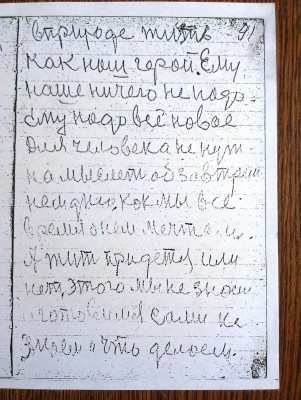 в природе жить 91
как наш герой. Ему
наше ничего не надо.
Ему надо всё новое
Для человека не нуж-
на мысль об завтраш
нем дне, как мы все
время о нем мечтаем.
А жить придется или
нет, этого мы не знаем
готовимся сами не
знаем что делаем.